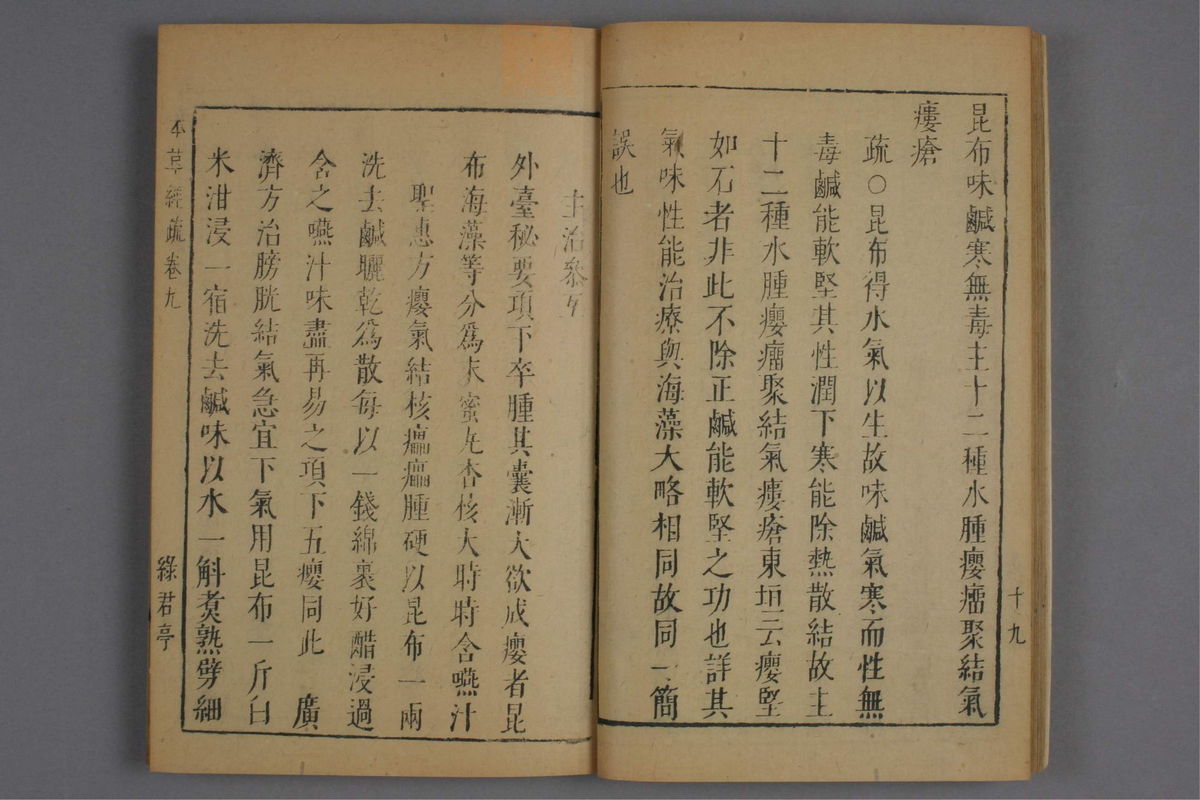 昆布味鹹寒無毒主十二種水腫癭瘤聚結氣
瘻瘡
疏○昆布得水氣以生故味鹹氣寒而性無
毒鹹能軟堅其性潤下寒能除熱散結故主
十二種水腫癭瘤聚結氣瘻瘡東垣云癭堅
如石者非此不除正鹹能軟堅之功也詳其
氣味性能治療與海藻大略相同故同一簡
誤也
十九
主治參互
外臺秘要項下卒腫其囊漸大欲成癭者昆
布海藻等分爲末蜜丸杏核大時時含嚥汁
聖惠方癭氣結核瘟瘟腫硬以昆布一兩
洗去鹹曬乾爲散每以一錢綿裹好醋浸過
含之嚥汁味盡再易之項下五癭同此 廣
濟方治膀胱結氣急宜下氣用昆布一斤白
米泔浸一宿洗去鹹味以水一斛煮熟劈細
本草經疏卷九
綠君亭